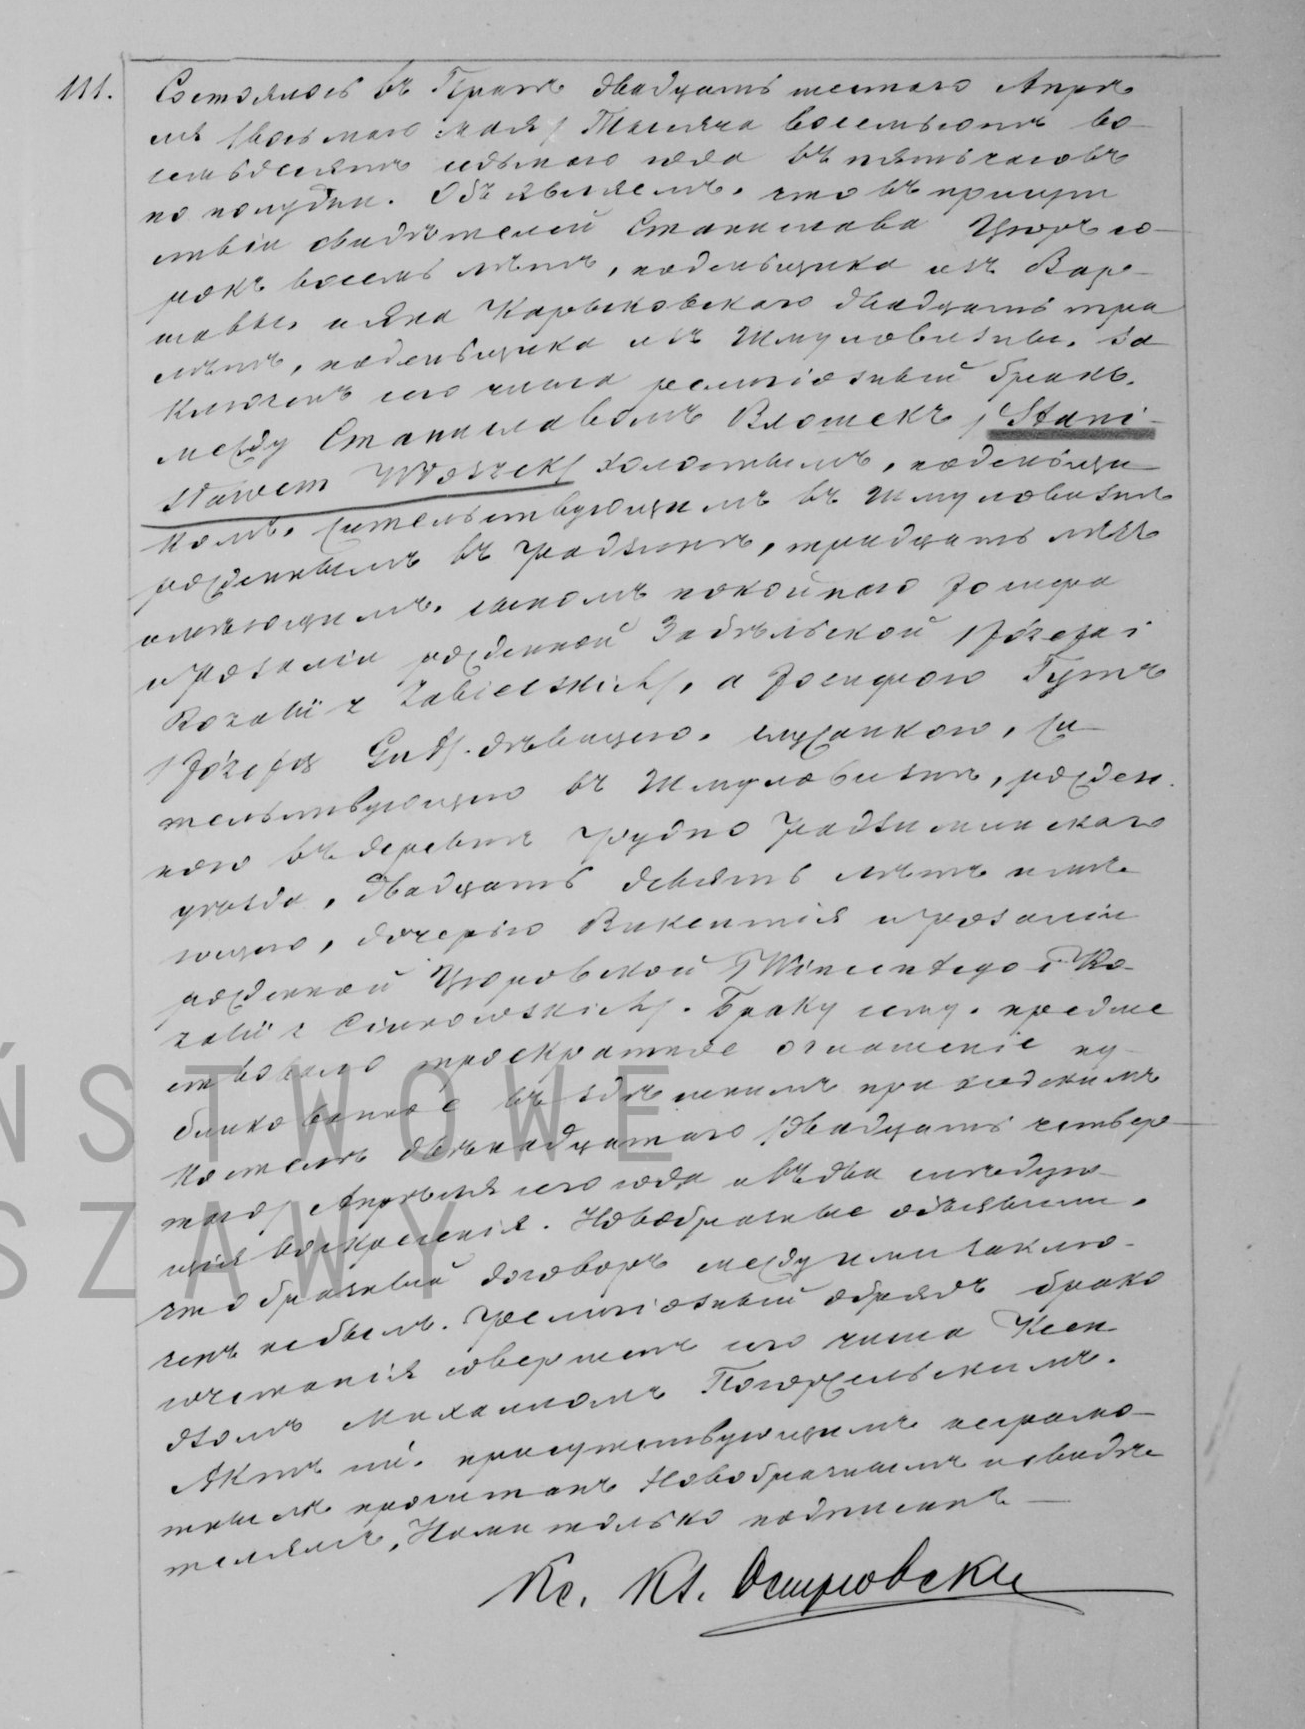 111. Состоялось въ Прагѣ двадцать шестаго Апрѣ-
ля /восьмаго мая/ Тысяча восемьсотъ во-
семьдесятъ седьмаго года въ пять часовъ
по полудни. Объявляемъ, что въ присут
ствіи свидѣтелей Станислава Цюръ со-
рокъ восемь лѣтъ, поденьщика изъ Вар-
шавы, и Яна Карвсковскаго двадцать три
лѣтъ, поденьщика изъ Шмуловизны, за
ключенъ сего числа религіозный бракъ
между Станиславомъ Влошекъ /Stani-
sławem Włoszek/ холостымъ, поденьщи
комъ, жительствующимъ въ Шмуловизнѣ
рожденнымъ въ Радзыминѣ, тридцать лѣтъ
имѣющимъ, сыномъ покойнаго Іосифа
и Розаліи рожденной Забѣльской /Józefa i
Rozalii z Zabielskich/, а Іосифою Гутъ
/Józefą Gut/ дѣвицею, служанкою, жи
тельствующею въ Шмуловизнѣ, рожден.
ною въ деревнѣ Грудно Радзыминскаго
уѣзда, двадцать девять лѣтъ имѣ
ющею, дочерью Викентія и Розаліи
рожденной Цюровской /Wincentego i Ro-
zalii z Ciurowskich/. Браку сему предше
ствовало троекратное оглашеніе пу-
бликованное въ здѣшнемъ приходскомъ
костелѣ двѣнадцатаго /двадцать четвер-
таго/ Апрѣля сего года и въ два слѣдую-
щія воскресенія. Новобрачные объявили,
что брачный договоръ между ими заклю-
ченъ не былъ. Религіозный обрядъ брако
сочетанія совершенъ сего числа Ксен
дзомъ Михаиломъ Погожельскимъ.
Актъ сей присутствующимъ неграмо-
тнымъ прочитанъ Новобрачнымъ и свидѣ
телямъ, Нами только подписанъ —
Кс. Кл. Островски